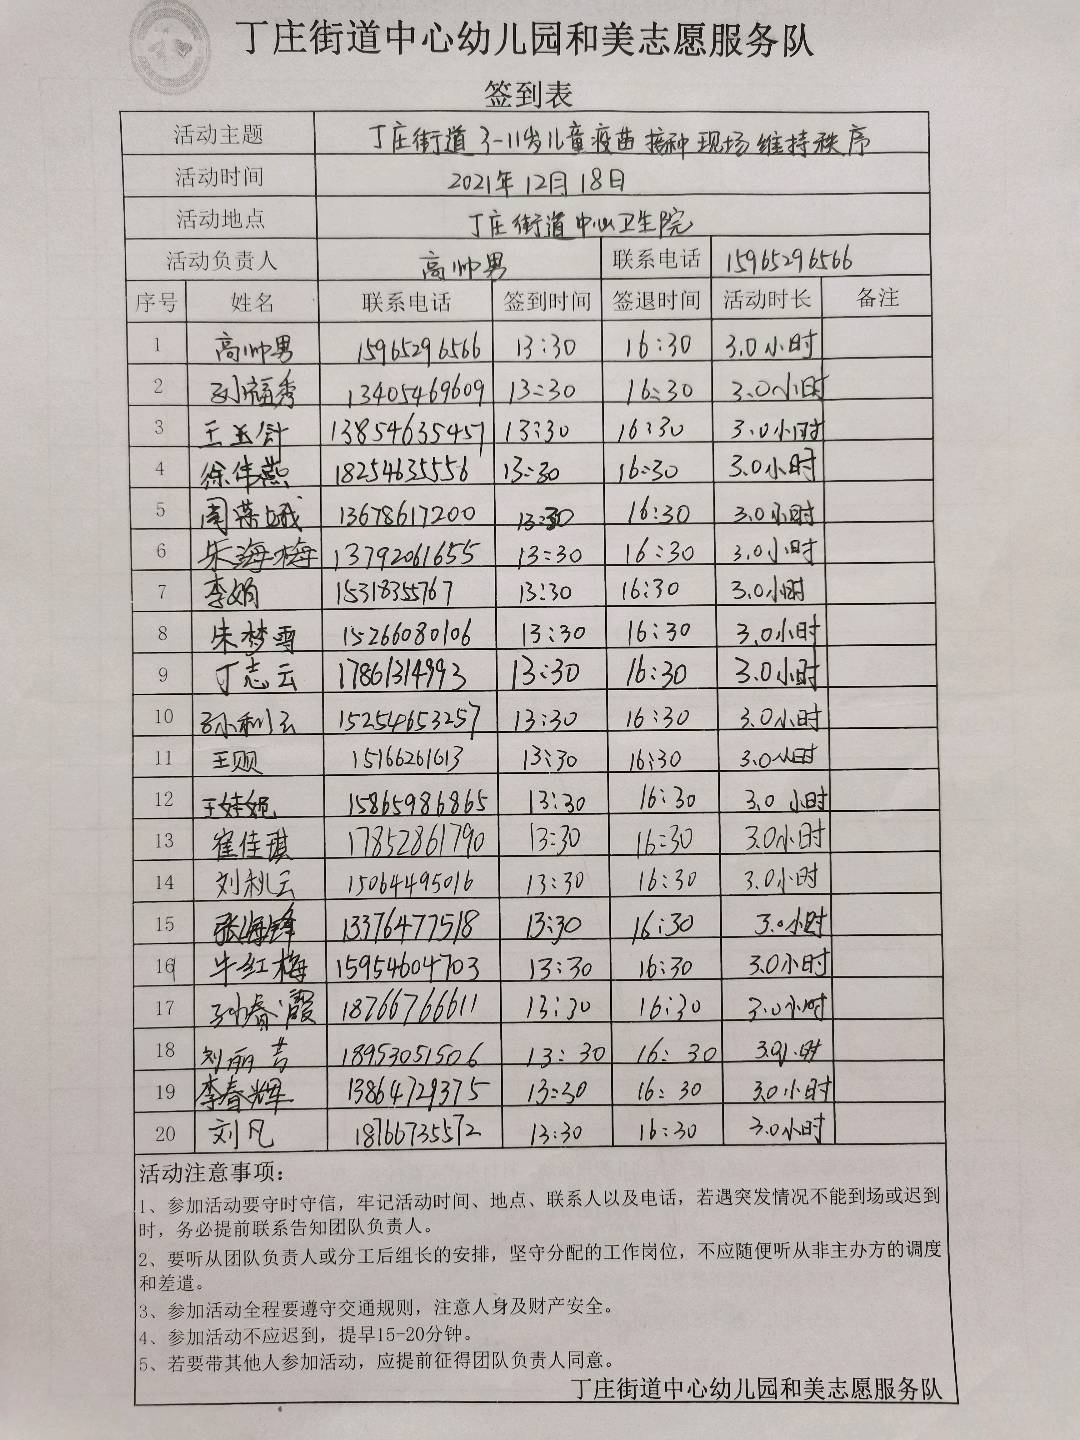 丁庄街道中心幼儿园和美志愿服务队
签到表
活动主题 丁庄街道3-11岁儿童疫苗接种现场维持秩序
活动时间 2021年12月18日
活动地点 丁庄街道中心卫生院
活动负责人 高帅男 联系电话 15965296566
序号 姓名 联系电话 签到时间 签退时间 活动时长 备注
1 高帅男 15965296566 13:30 16:30 3.0小时
2 孙福秀 13405469609 13:30 16:30 3.0小时
3 王玉 13854635457 13:30 16:30 3.0小时
4 徐伟燕 18254635556 13:30 16:30 3.0小时
5 周荣娥 13678617200 13:30 16:30 3.0小时
6 朱海梅 13792061655 13:30 16:30 3.0小时
7 李娟 15318355767 13:30 16:30 3.0小时
8 朱梦雪 15266080106 13:30 16:30 3.0小时
9 丁志云 17861314993 13:30 16:30 3.0小时
10 孙利云 15254653257 13:30 16:30 3.0小时
11 王贝 15166261613 13:30 16:30 3.0小时
12 王 15865986865 13:30 16:30 3.0小时
13 崔佳琪 17852861790 13:30 16:30 3.0小时
14 刘秋云 15064495016 13:30 16:30 3.0小时
15 张海锋 13376477518 13:30 16:30 3.0小时
16 牛红梅 15954604703 13:30 16:30 3.0小时
17 孙春霞 18766766611 13:30 16:30 3.0小时
18 刘丽 18953051506 13:30 16:30 3.0小时
19 李春辉 13864729375 13:30 16:30 3.0小时
20 刘凡 18766735572 13:30 16:30 3.0小时
活动注意事项：
1、参加活动要守时守信，牢记活动时间、地点、联系人以及电话，若遇突发情况不能到场或迟到
时，务必提前联系告知团队负责人。
2、要听从团队负责人或分工后组长的安排，坚守分配的工作岗位，不应随便听从非主办方的调度
和差遣。
3、参加活动全程要遵守交通规则，注意人身及财产安全。
4、参加活动不应迟到，提早15-20分钟。
5、若要带其他人参加活动，应提前征得团队负责人同意。
丁庄街道中心幼儿园和美志愿服务队